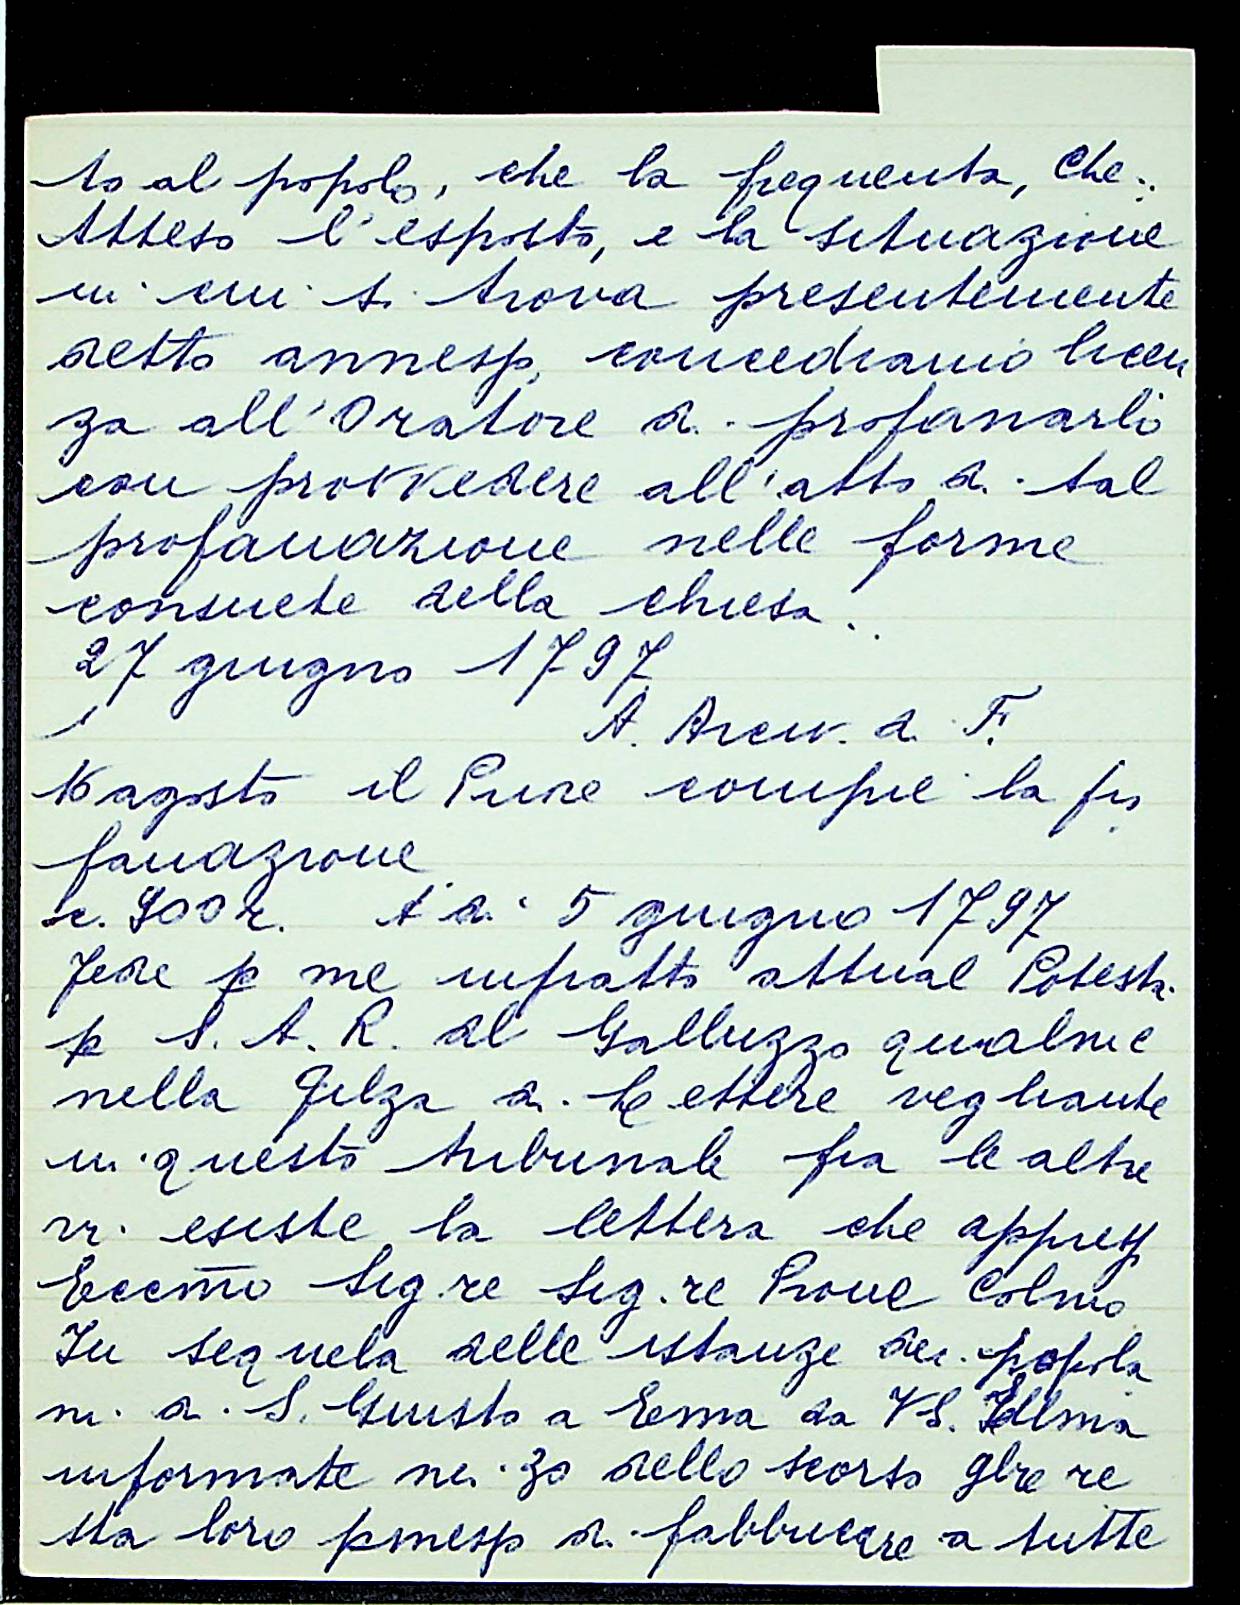 to al popolo, che la frequenta, che..
Atteso l'esposto, e la situazione
in cui si trova presentemente
detto annesso, concediamo licen
za all'Oratore di profanarlo
con provvedere all'atto di tal
profanazione nelle forme
consuete della chiesa..
27 giugno 1797
A. Arciv. di F.
16 agosto il Piovane compie la pro
fanazione
sc. 900 r. A di 5 giugno 1797
Fede p me infratto attual Potestà
p S. A. R. al Galluzzo qualme
nella Filza di Lettere vegliante
in questo tribunale fra le altre
vi esiste la lettera che appresso
Eccmo Sig.re Sig.re Prone Colmo
In sequela delle istanze dei popola
ni di S. Giusto a Ema da VS. Illma
informate ne 30 dello scorso gbre re
sta loro pmesso di fabbricare a tutte